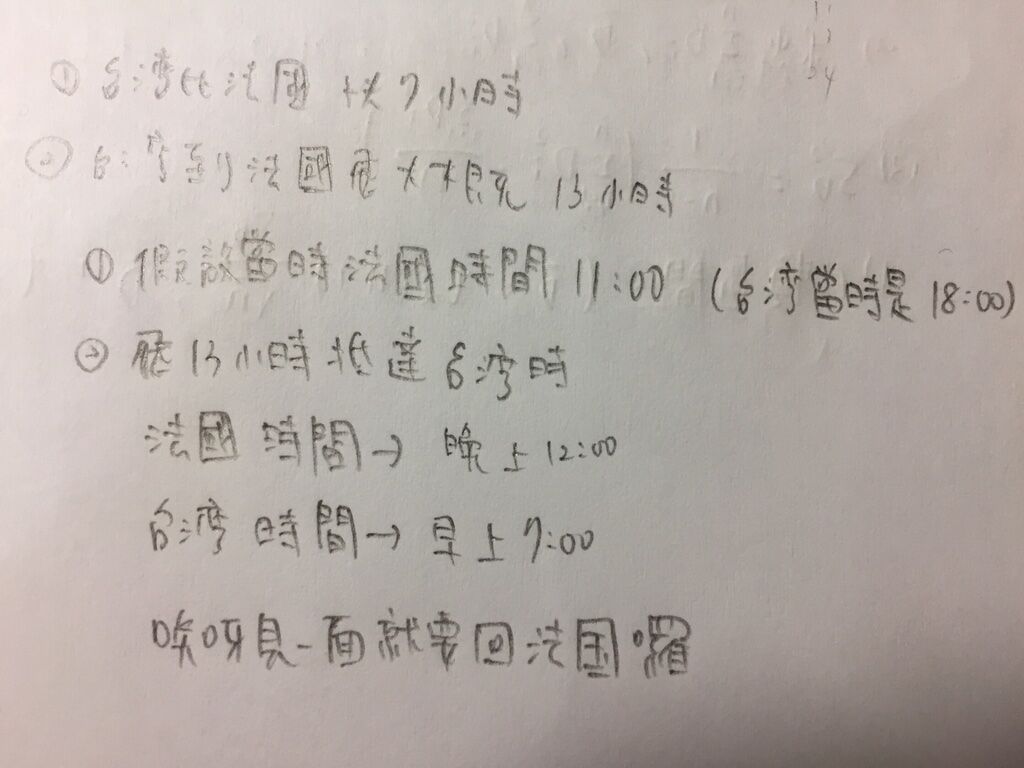 ① 台湾比法國快7小時
② 台湾到法國歷大概 13小時
① 假設當時法國時間 11:00 (台湾當時是 18:00)
② 歷13小時抵達台湾時
法國時間→ 晚上12:00
台湾時間→ 早上7:00
唉呀見一面就要回法国囉